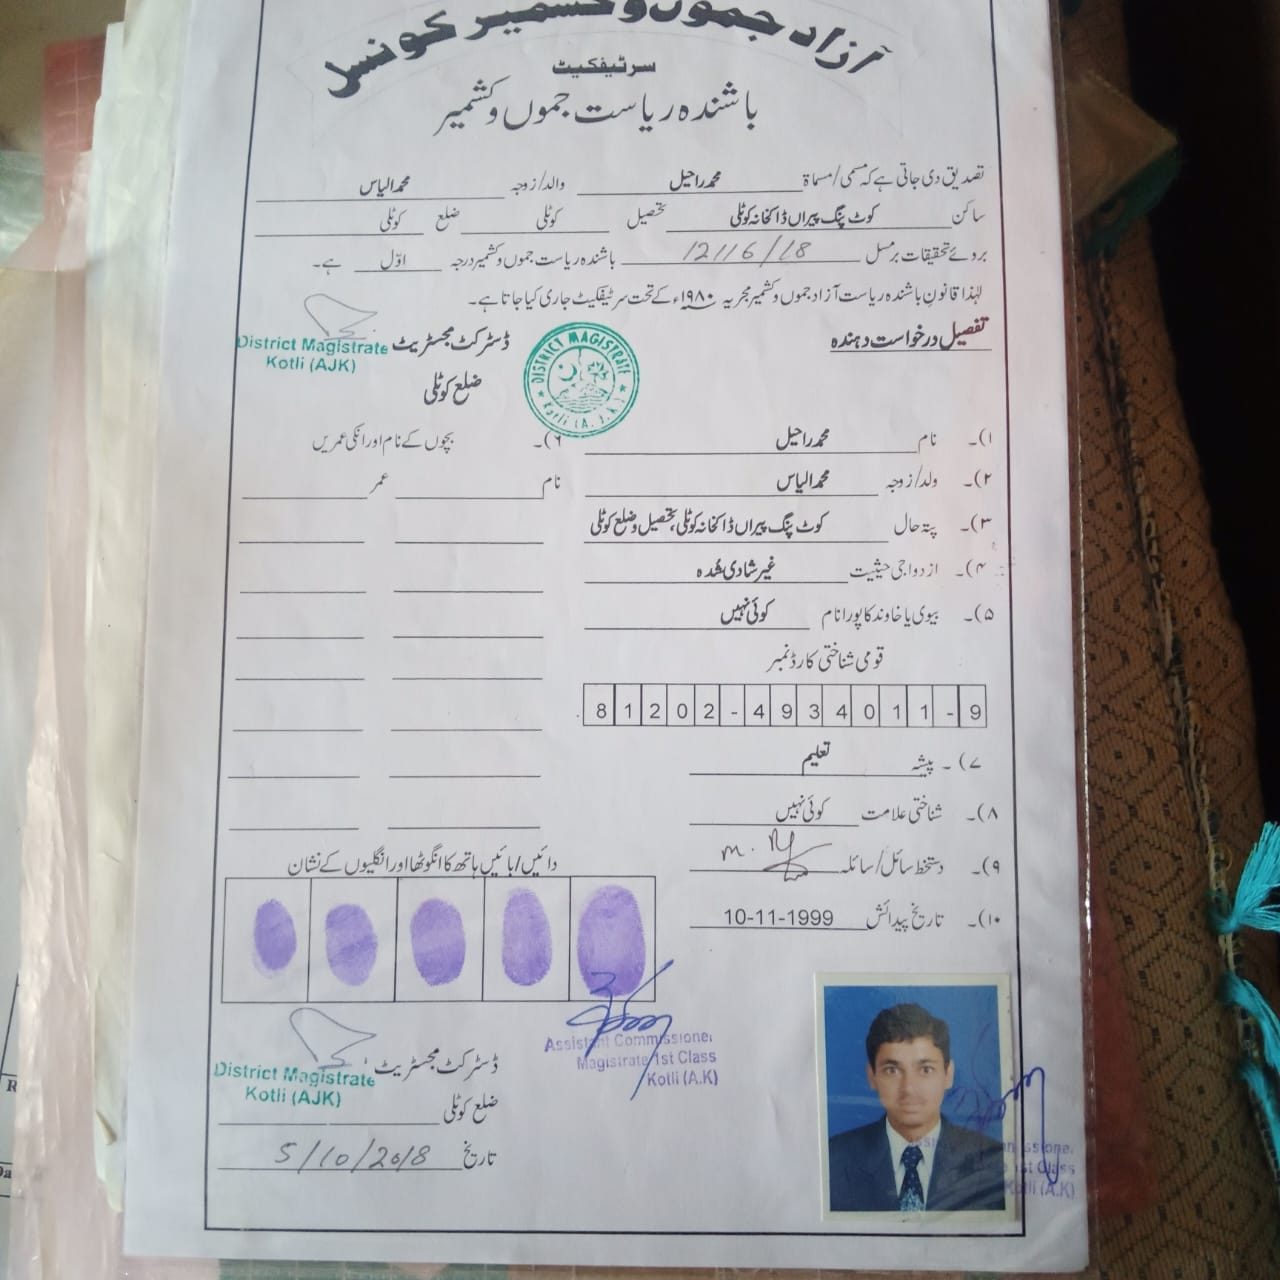 آزاد جموں و کشمیر کونسل
سرٹیفکیٹ
باشندہ ریاست جموں و کشمیر
تصدیق دی جاتی ہے کہ مسمی/مسماۃ محمد راحیل والد/زوجہ محمد الیاس
ساکن کوٹ پنگ پیراں ڈاکخانہ کوٹلی تحصیل کوٹلی ضلع کوٹلی
بروئے تحقیقات برمسل 12116/18 باشندہ ریاست جموں و کشمیر درجہ اوّل ہے۔
لہٰذا قانون باشندہ ریاست آزاد جموں و کشمیر مجریہ ۱۹۸۰ء کے تحت سرٹیفکیٹ جاری کیا جاتا ہے۔
تفصیل درخواست دہندہ
ڈسٹرکٹ مجسٹریٹ
District Magistrate
Kotli (AJK)
ضلع کوٹلی
DISTRICT MAGISTRATE
Kotli (A.J.K)
۱)۔ نام محمد راحیل
۲)۔ ولد/زوجہ محمد الیاس
۳)۔ پتہ حال کوٹ پنگ پیراں ڈاکخانہ کوٹلی، تحصیل و ضلع کوٹلی
۴)۔ ازدواجی حیثیت غیر شادی شدہ
۵)۔ بیوی یا خاوند کا پورا نام کوئی نہیں
قومی شناختی کارڈ نمبر
81202-4934011-9
۶)۔ بچوں کے نام اور انکی عمریں
نام عمر
۷)۔ پیشہ تعلیم
۸)۔ شناختی علامت کوئی نہیں
۹)۔ دستخط سائل/سائلہ
۱۰)۔ تاریخ پیدائش 10-11-1999
دائیں/بائیں ہاتھ کا انگوٹھا اور انگلیوں کے نشان
Assistant Commissioner
Magistrate 1st Class
Kotli (A.K)
ڈسٹرکٹ مجسٹریٹ
District Magistrate
Kotli (AJK)
ضلع کوٹلی
تاریخ 5/10/2018
ssioner
1st Class
Kotli (A.K)